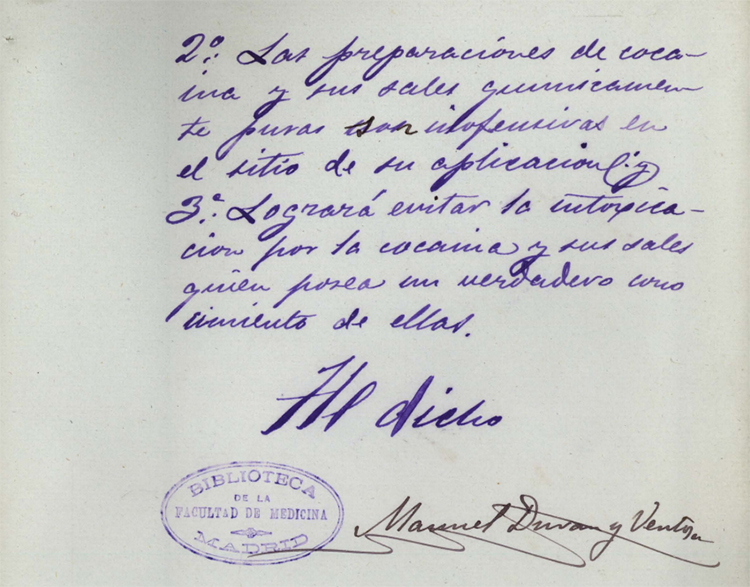 2º: Las preparaciones de coca-
ina y sus sales quimicamen
te puras son inofensivas en
el sitio de su aplicacion (:y
3ª: Logrará evitar la intoxica-
cion por la cocaina y sus sales
quien posea un verdadero cono
cimiento de ellas.
He dicho
BIBLIOTECA
DE LA
FACULTAD DE MEDICINA
MADRID
Manuel Duran y Ventosa